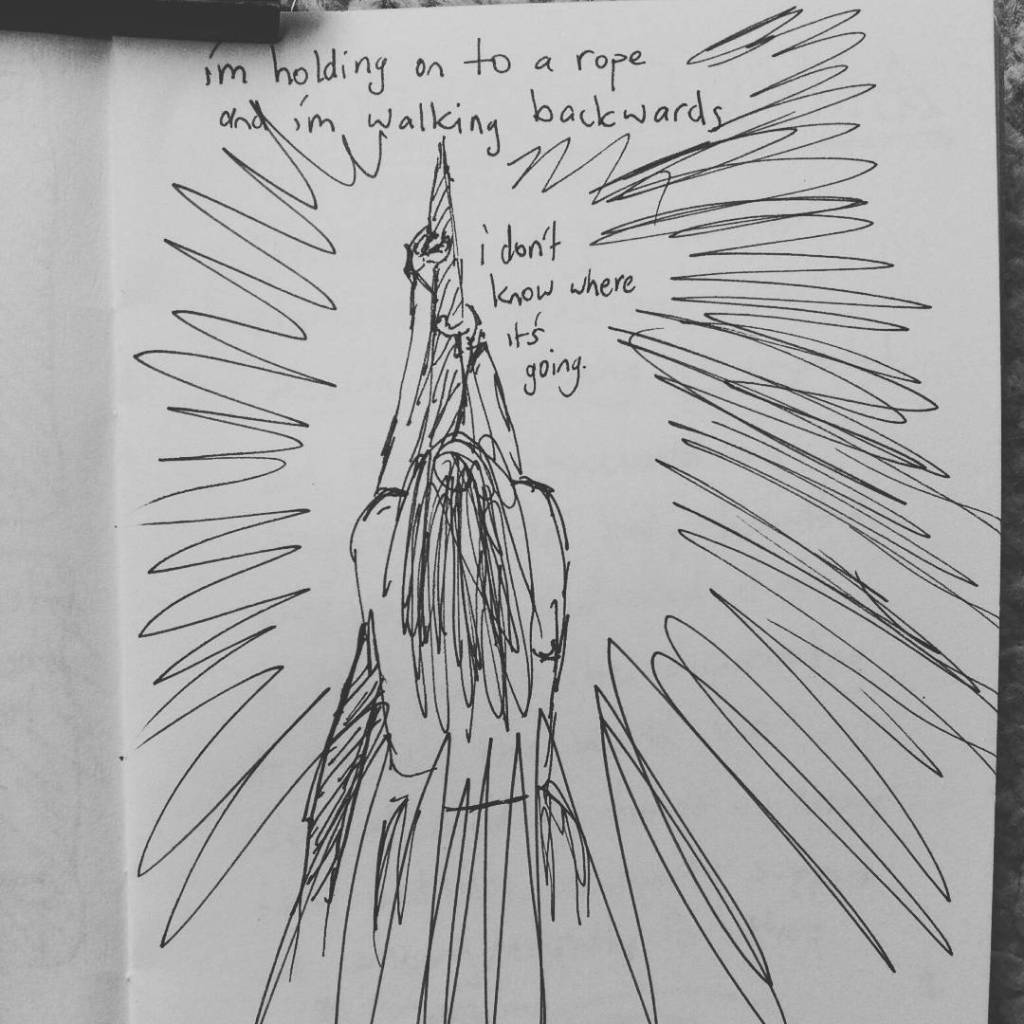 i'm holding on to a rope
and i'm walking backwards
i don't
know where
it's
going.